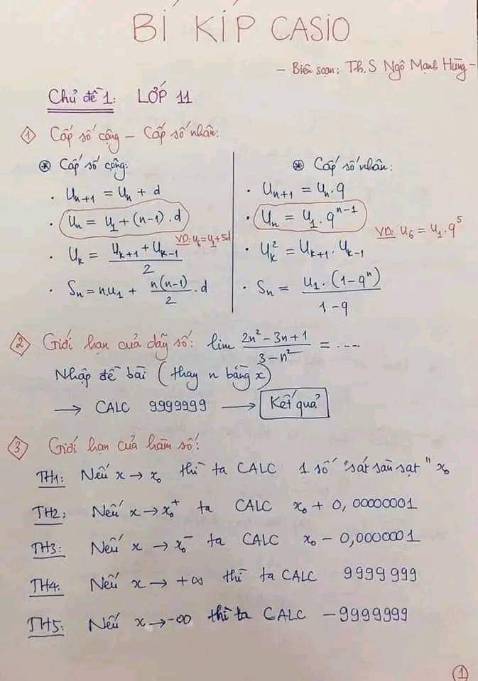 BÍ KÍP CASIO
- Biên soạn: Th.S Ngô Mạnh Hùng -
Chủ đề 1: LỚP 11
1 Cấp số cộng - Cấp số nhân:
* Cấp số cộng:
· Uₙ₊₁ = Uₙ + d
· Uₙ = U₁ + (n-1).d
VD: U₆ = U₁ + 5d
· Uₖ = (Uₖ₊₁ + Uₖ₋₁)/2
· Sₙ = n.U₁ + n(n-1)/2 . d
* Cấp số nhân:
· Uₙ₊₁ = Uₙ.q
· Uₙ = U₁.qⁿ⁻¹
VD: U₆ = U₁.q⁵
· Uₖ² = Uₖ₊₁.Uₖ₋₁
· Sₙ = U₁.(1-qⁿ)/(1-q)
2 Giới hạn của dãy số: lim (2n² - 3n + 1)/(3 - n²) = ...
Nhập đề bài (thay n bằng x)
→ CALC 9999999 → Kết quả
3 Giới hạn của hàm số:
TH1: Nếu x → x₀ thì ta CALC 1 số "sát sàn sạt" x₀
TH2: Nếu x → x₀⁺ ta CALC x₀ + 0,00000001
TH3: Nếu x → x₀⁻ ta CALC x₀ - 0,0000001
TH4: Nếu x → +∞ thì ta CALC 9999999
TH5: Nếu x → -∞ thì ta CALC -9999999
1